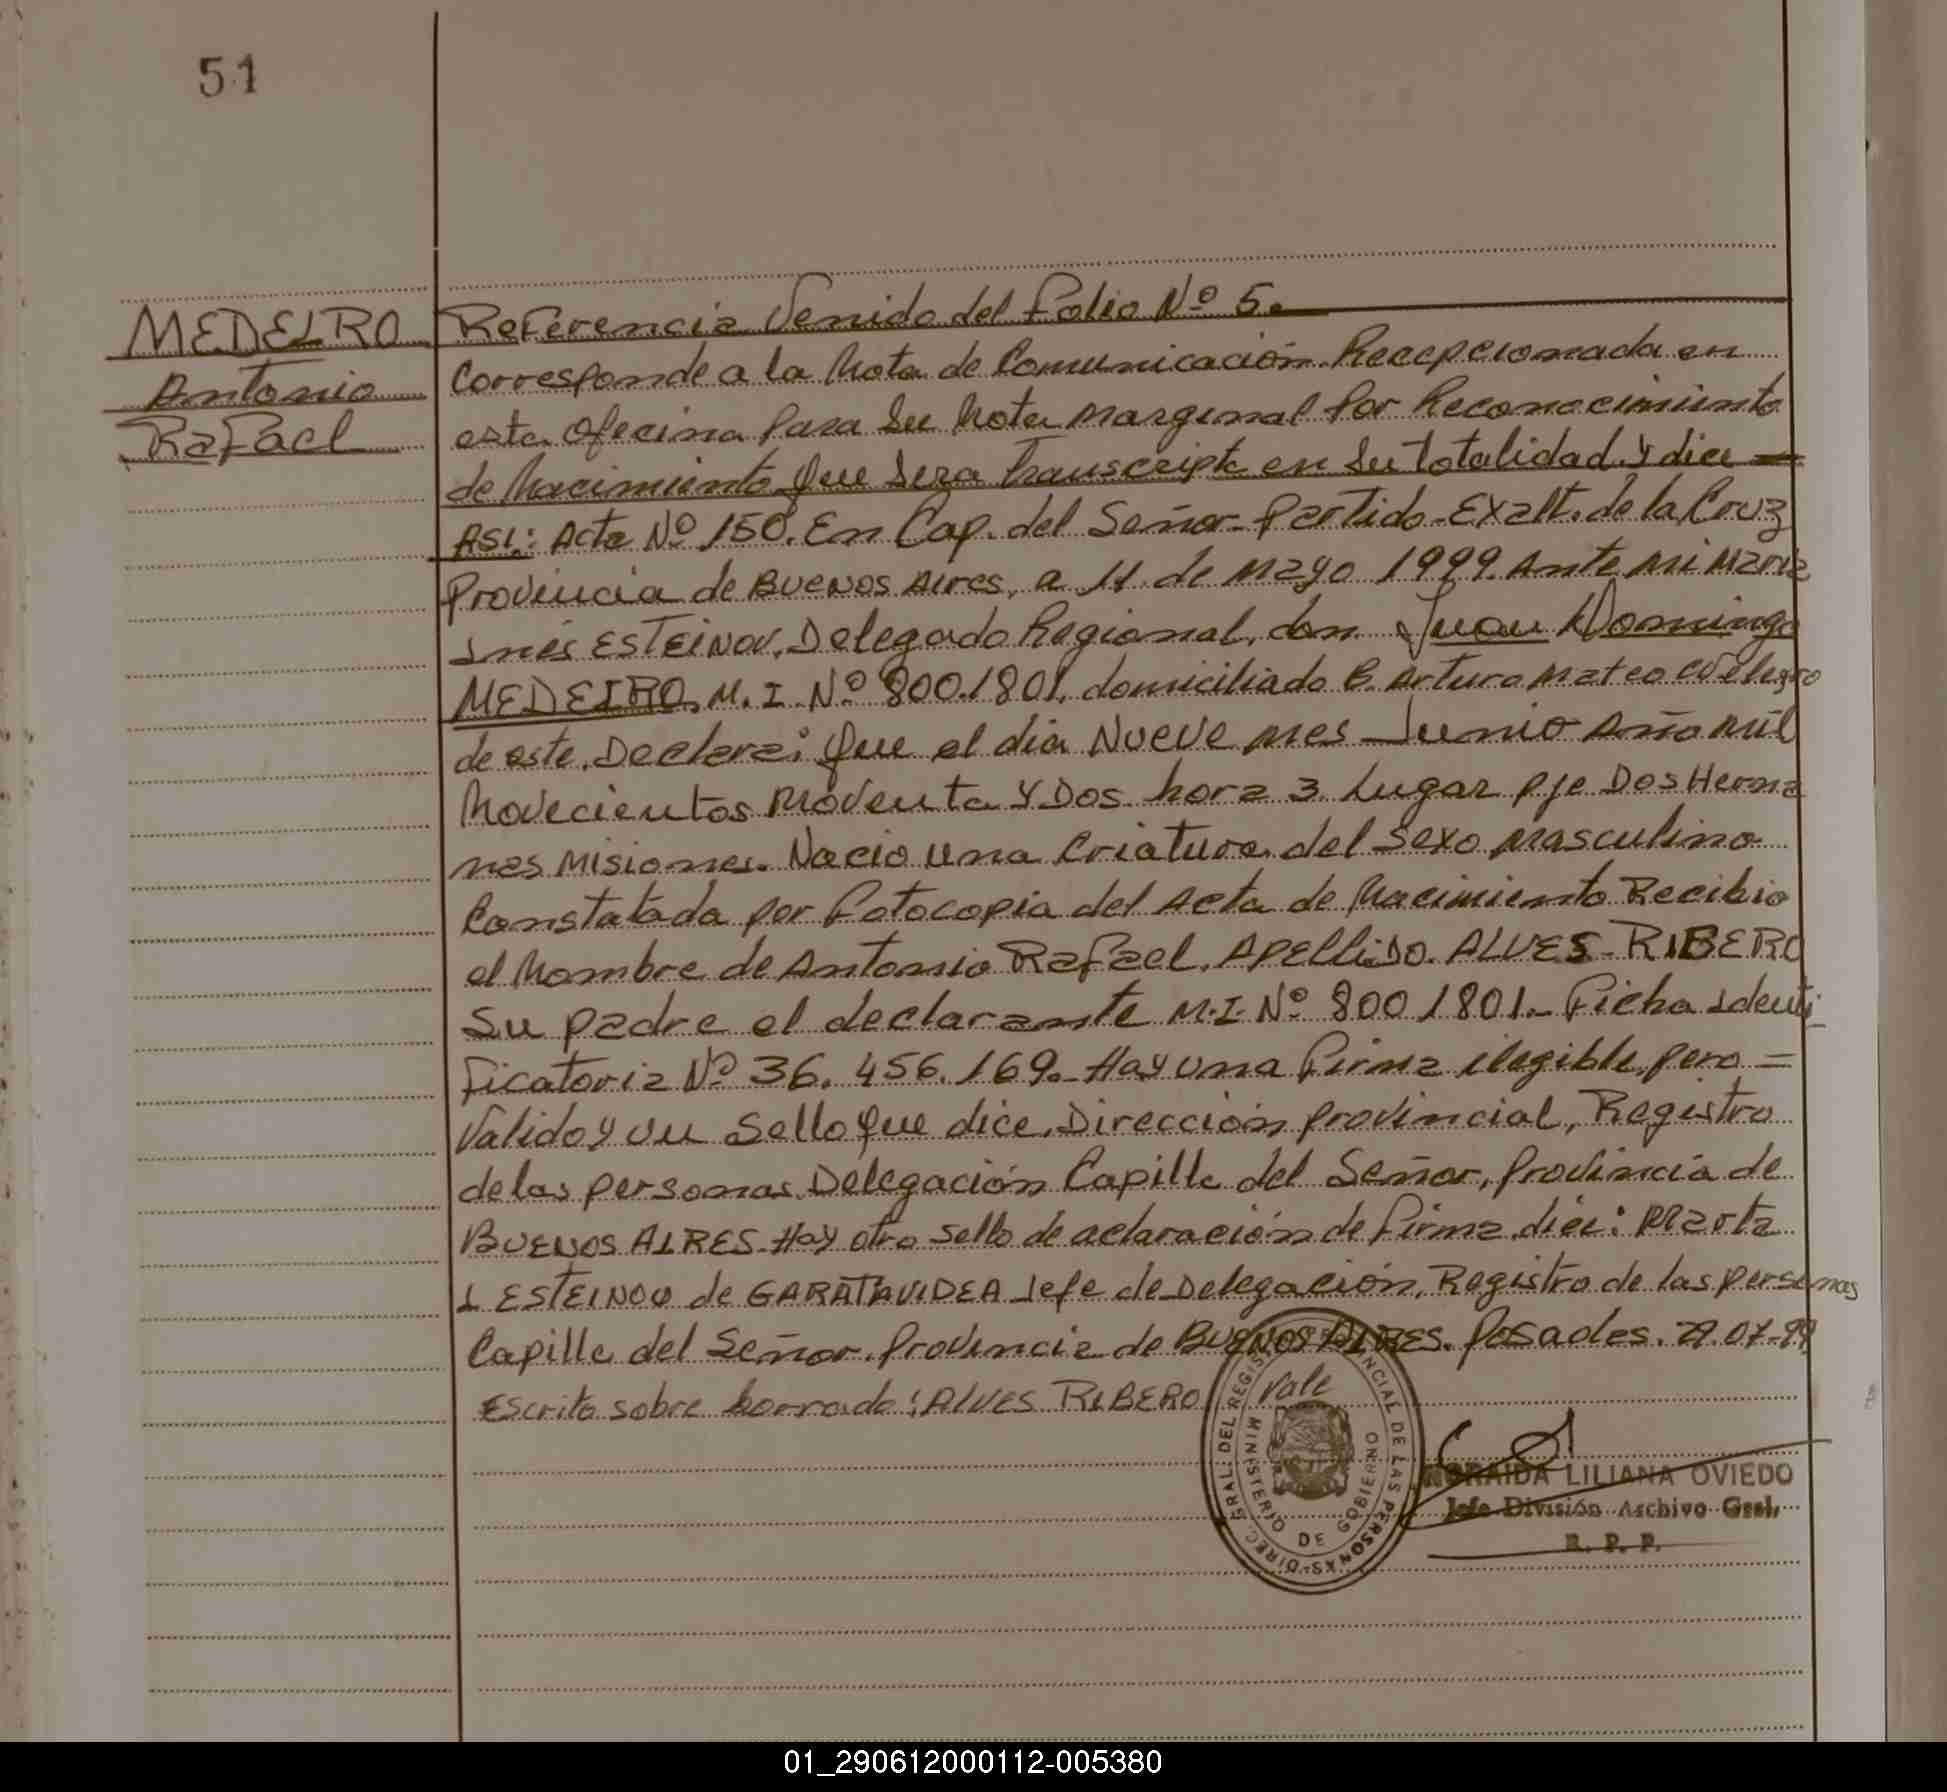 51
MEDEIRO
Antonio
Rafael
Referencia Venido del Folio Nº 5.
Corresponde a la Nota de Comunicación Recepcionada en
esta oficina para su Nota Marginal por Reconocimiento
de Nacimiento que sera transcripta en su totalidad y dice
ASI: Acta Nº 150. En Cap. del Señor - Partido - Exalt. de la Cruz
Provincia de Buenos Aires, a 11 de Mayo 1999. Ante mi Maria
Inés ESTEINOU, Delegado Regional, don Juan Domingo
MEDEIRO, M. I. Nº 8001801, domiciliado B. Arturo Mateo
de este. Declara: Que el dia Nueve mes Junio Año Mil
Novecientos Noventa y Dos hora 3 Lugar Pje Dos Herma
nas Misiones. Nacio una Criatura del Sexo Masculino
Constatada por Fotocopia del Acta de Nacimiento Recibio
el Nombre de Antonio Rafael, APELLIDO. ALVES - RIBERO
Su padre el declarante M.I. Nº 8001801.- Ficha Identi
ficatoria Nº 36.456.169.- Hay una Firma ilegible, pero =
Valido y un Sello que dice, Dirección Provincial, Registro
de las personas Delegación Capilla del Señor, Provincia de
BUENOS AIRES. Hay otro sello de aclaración de Firma, dice: Marta
I ESTEINOU de GARATAVIDEA Jefe de Delegación, Registro de las personas
Capilla del Señor, Provincia de BUENOS AIRES. Posadas. 07-99
Escrito sobre borrado: ALVES RIBERO Vale
DIREC. GRAL. DEL REGISTRO PROVINCIAL DE LAS PERSONAS
MINISTERIO DE GOBIERNO
NORAIDA LILIANA OVIEDO
Jefe División Archivo Gral.
R. P. P.
01_290612000112-005380